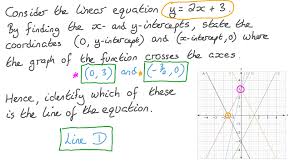 Consider the linear equation y = 2x + 3
By finding the x- and y-intercepts, state the
coordinates (0, y-intercept) and (x-intercept, 0) where
the graph of the function crosses the axes.
* (0, 3) and * (-3/2, 0)
Hence, identify which of these
is the line of the equation.
Line D